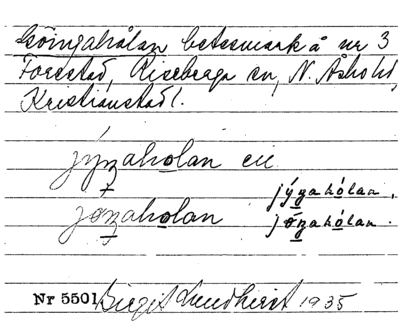 Göingahålan betesmark å nr 3
Forestad, Riseberga sn, N. Åsbo hd,
Kristianstad l.
jýŋahol̲an en.
jøŋahol̲an jýŋahólan.
jǿŋahólan.
Nr 5501 Birgit Lundkvist 1935